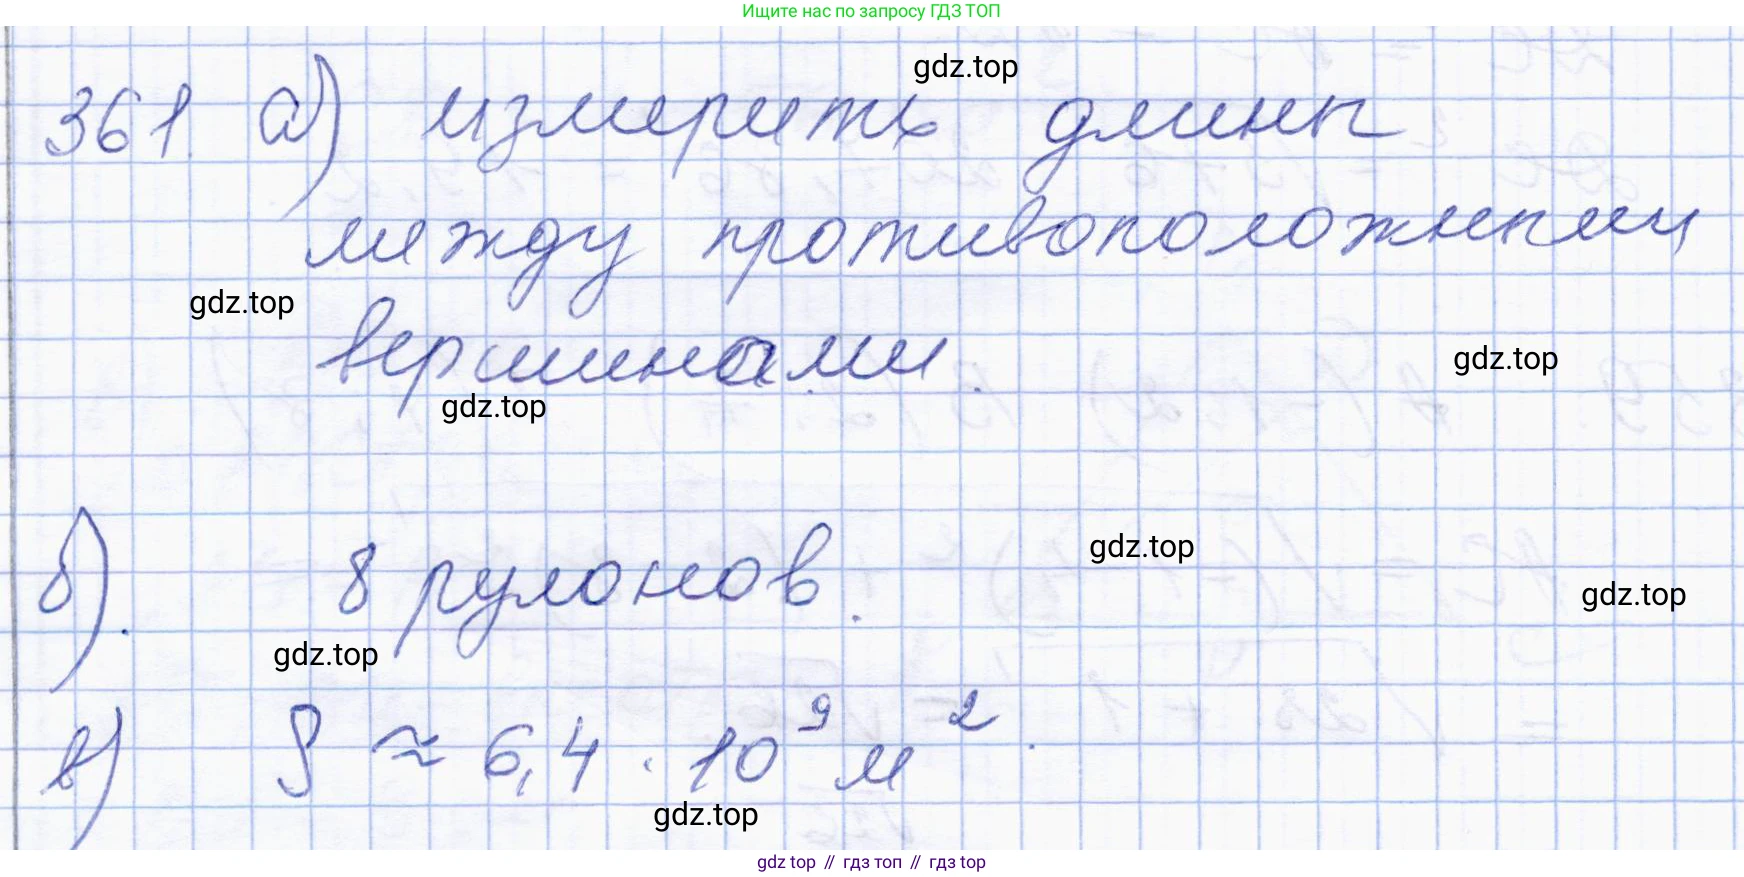 Ищите нас по запросу ГДЗ ТОП
gdz.top
361 а) измерить длины
между противоположными
gdz.top
вершинами.
gdz.top
gdz.top
gdz.top
б). 8 рулонов.
gdz.top
gdz.top
в) S ≈ 6,4 · 10⁹ м².
gdz.top
gdz top // гдз топ // гдз top